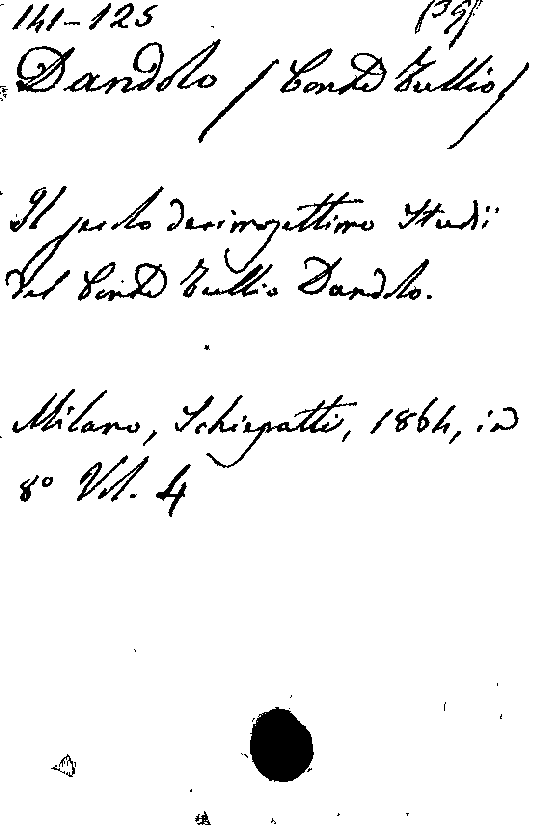 141-125
Dandolo / Conte Tullio /
Il secolo decimosettimo Studii
del Conte Tullio Dandolo.
Milano, Schiepatti, 1864, in
8° Vol. 4